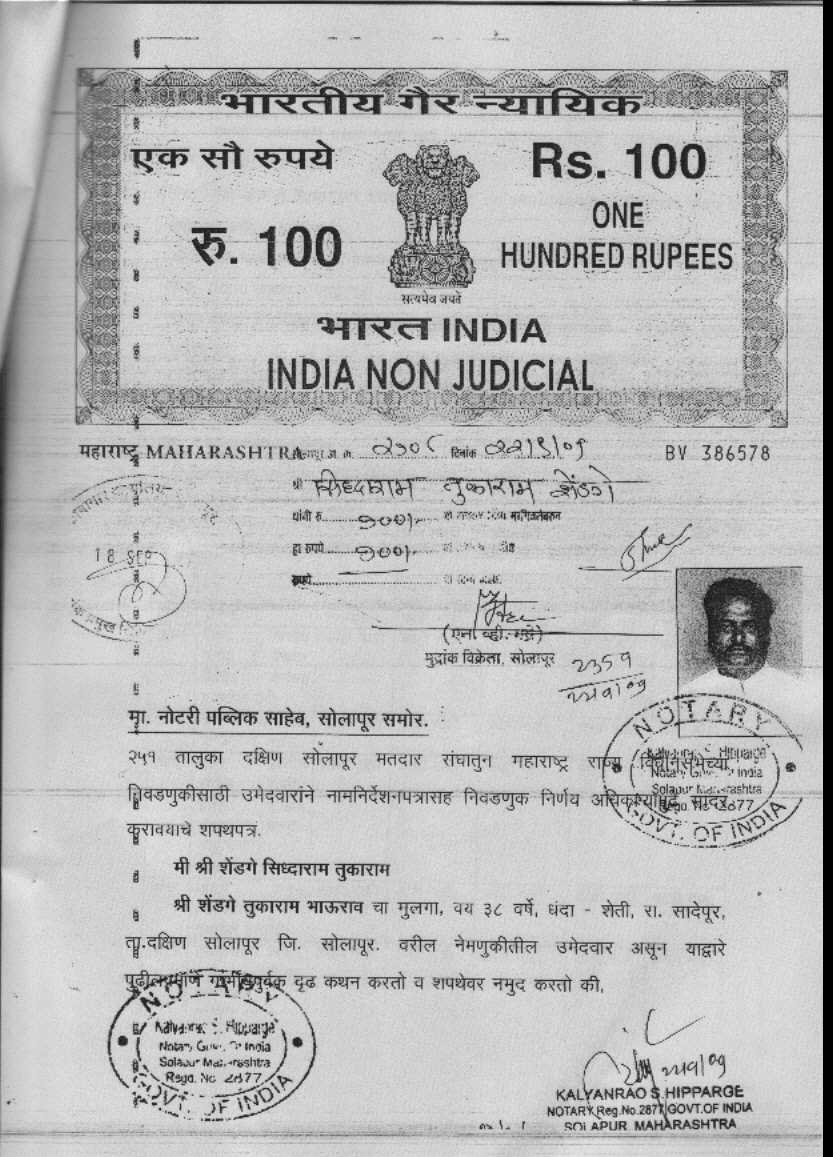 भारतीय गैर न्यायिक
एक सौ रुपये
Rs. 100
रु. 100
ONE
HUNDRED RUPEES
सत्यमेव जयते
भारत INDIA
INDIA NON JUDICIAL
महाराष्ट्र MAHARASHTRA
दिनांक
BV 386578
श्री सिध्दाराम तुकाराम शेंडगे
१००/-
18 SEP
हा रुपये १००/-
मुद्रांक विक्रेता, सोलापूर
मा. नोटरी पब्लिक साहेब, सोलापूर समोर.
२५१ तालुका दक्षिण सोलापूर मतदार संघातुन महाराष्ट्र राज्य विधानसभेच्या
निवडणुकीसाठी उमेदवारांने नामनिर्देशनपत्रासह निवडणुक निर्णय सादर
करावयाचे शपथपत्र.
NOTARY
Notary Govt. Of India
Solapur Maharashtra
Regd. No. 2877
GOVT. OF INDIA
मी श्री शेंडगे सिध्दाराम तुकाराम
श्री शेंडगे तुकाराम भाऊराव चा मुलगा, वय ३८ वर्षे, धंदा - शेती, रा. सादेपूर,
ता.दक्षिण सोलापूर जि. सोलापूर. वरील नेमणुकीतील उमेदवार असून याद्वारे
दृढ कथन करतो व शपथेवर नमुद करतो की,
NOTARY
Kalyanrao S. Hipparge
Notary Govt. Of India
Solapur Maharashtra
Regd. No. 2877
GOVT. OF INDIA
KALYANRAO S.HIPPARGE
NOTARY Reg.No.2877 GOVT.OF INDIA
SOLAPUR MAHARASHTRA